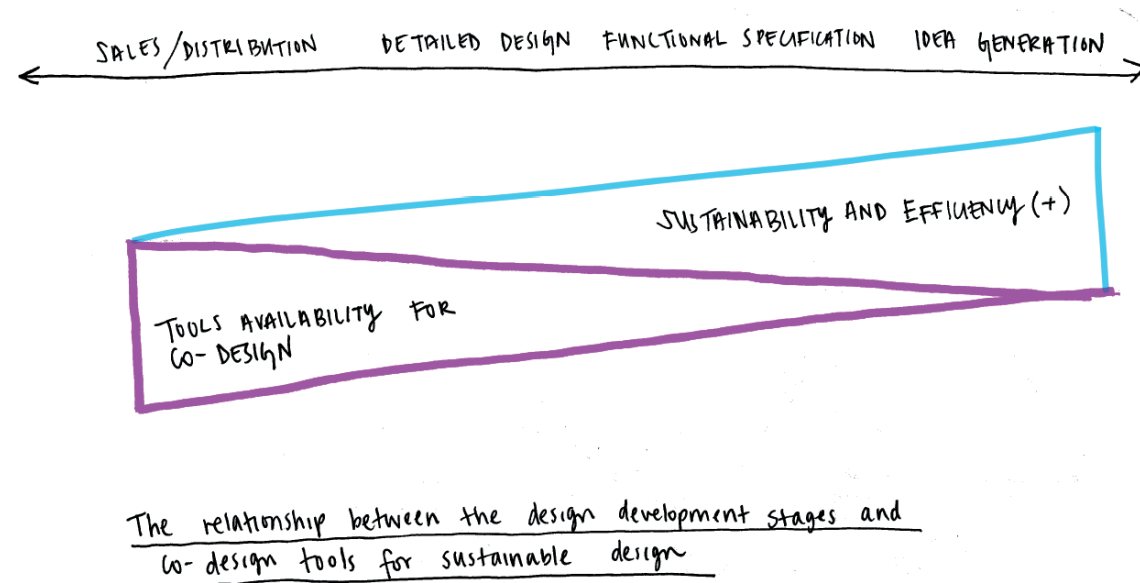 SALES/DISTRIBUTION DETAILED DESIGN FUNCTIONAL SPECIFICATION IDEA GENERATION
SUSTAINABILITY AND EFFICIENCY (+)
TOOLS AVAILABILITY FOR
CO-DESIGN
The relationship between the design development stages and
co-design tools for sustainable design